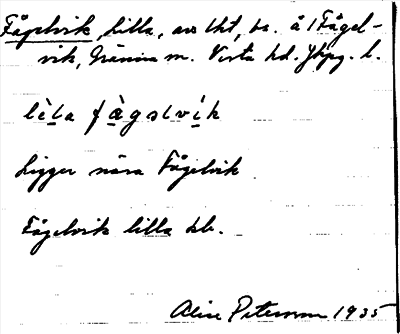 Fågelvik, lilla, avs lht, bs. å 1 Fågel-
vik, Gränna m. Vista hd. Jkpg. l.
lìla fågəlvik
Ligger nära Fågelvik
Fågelvik lilla kb.
Alice Peterson 1935